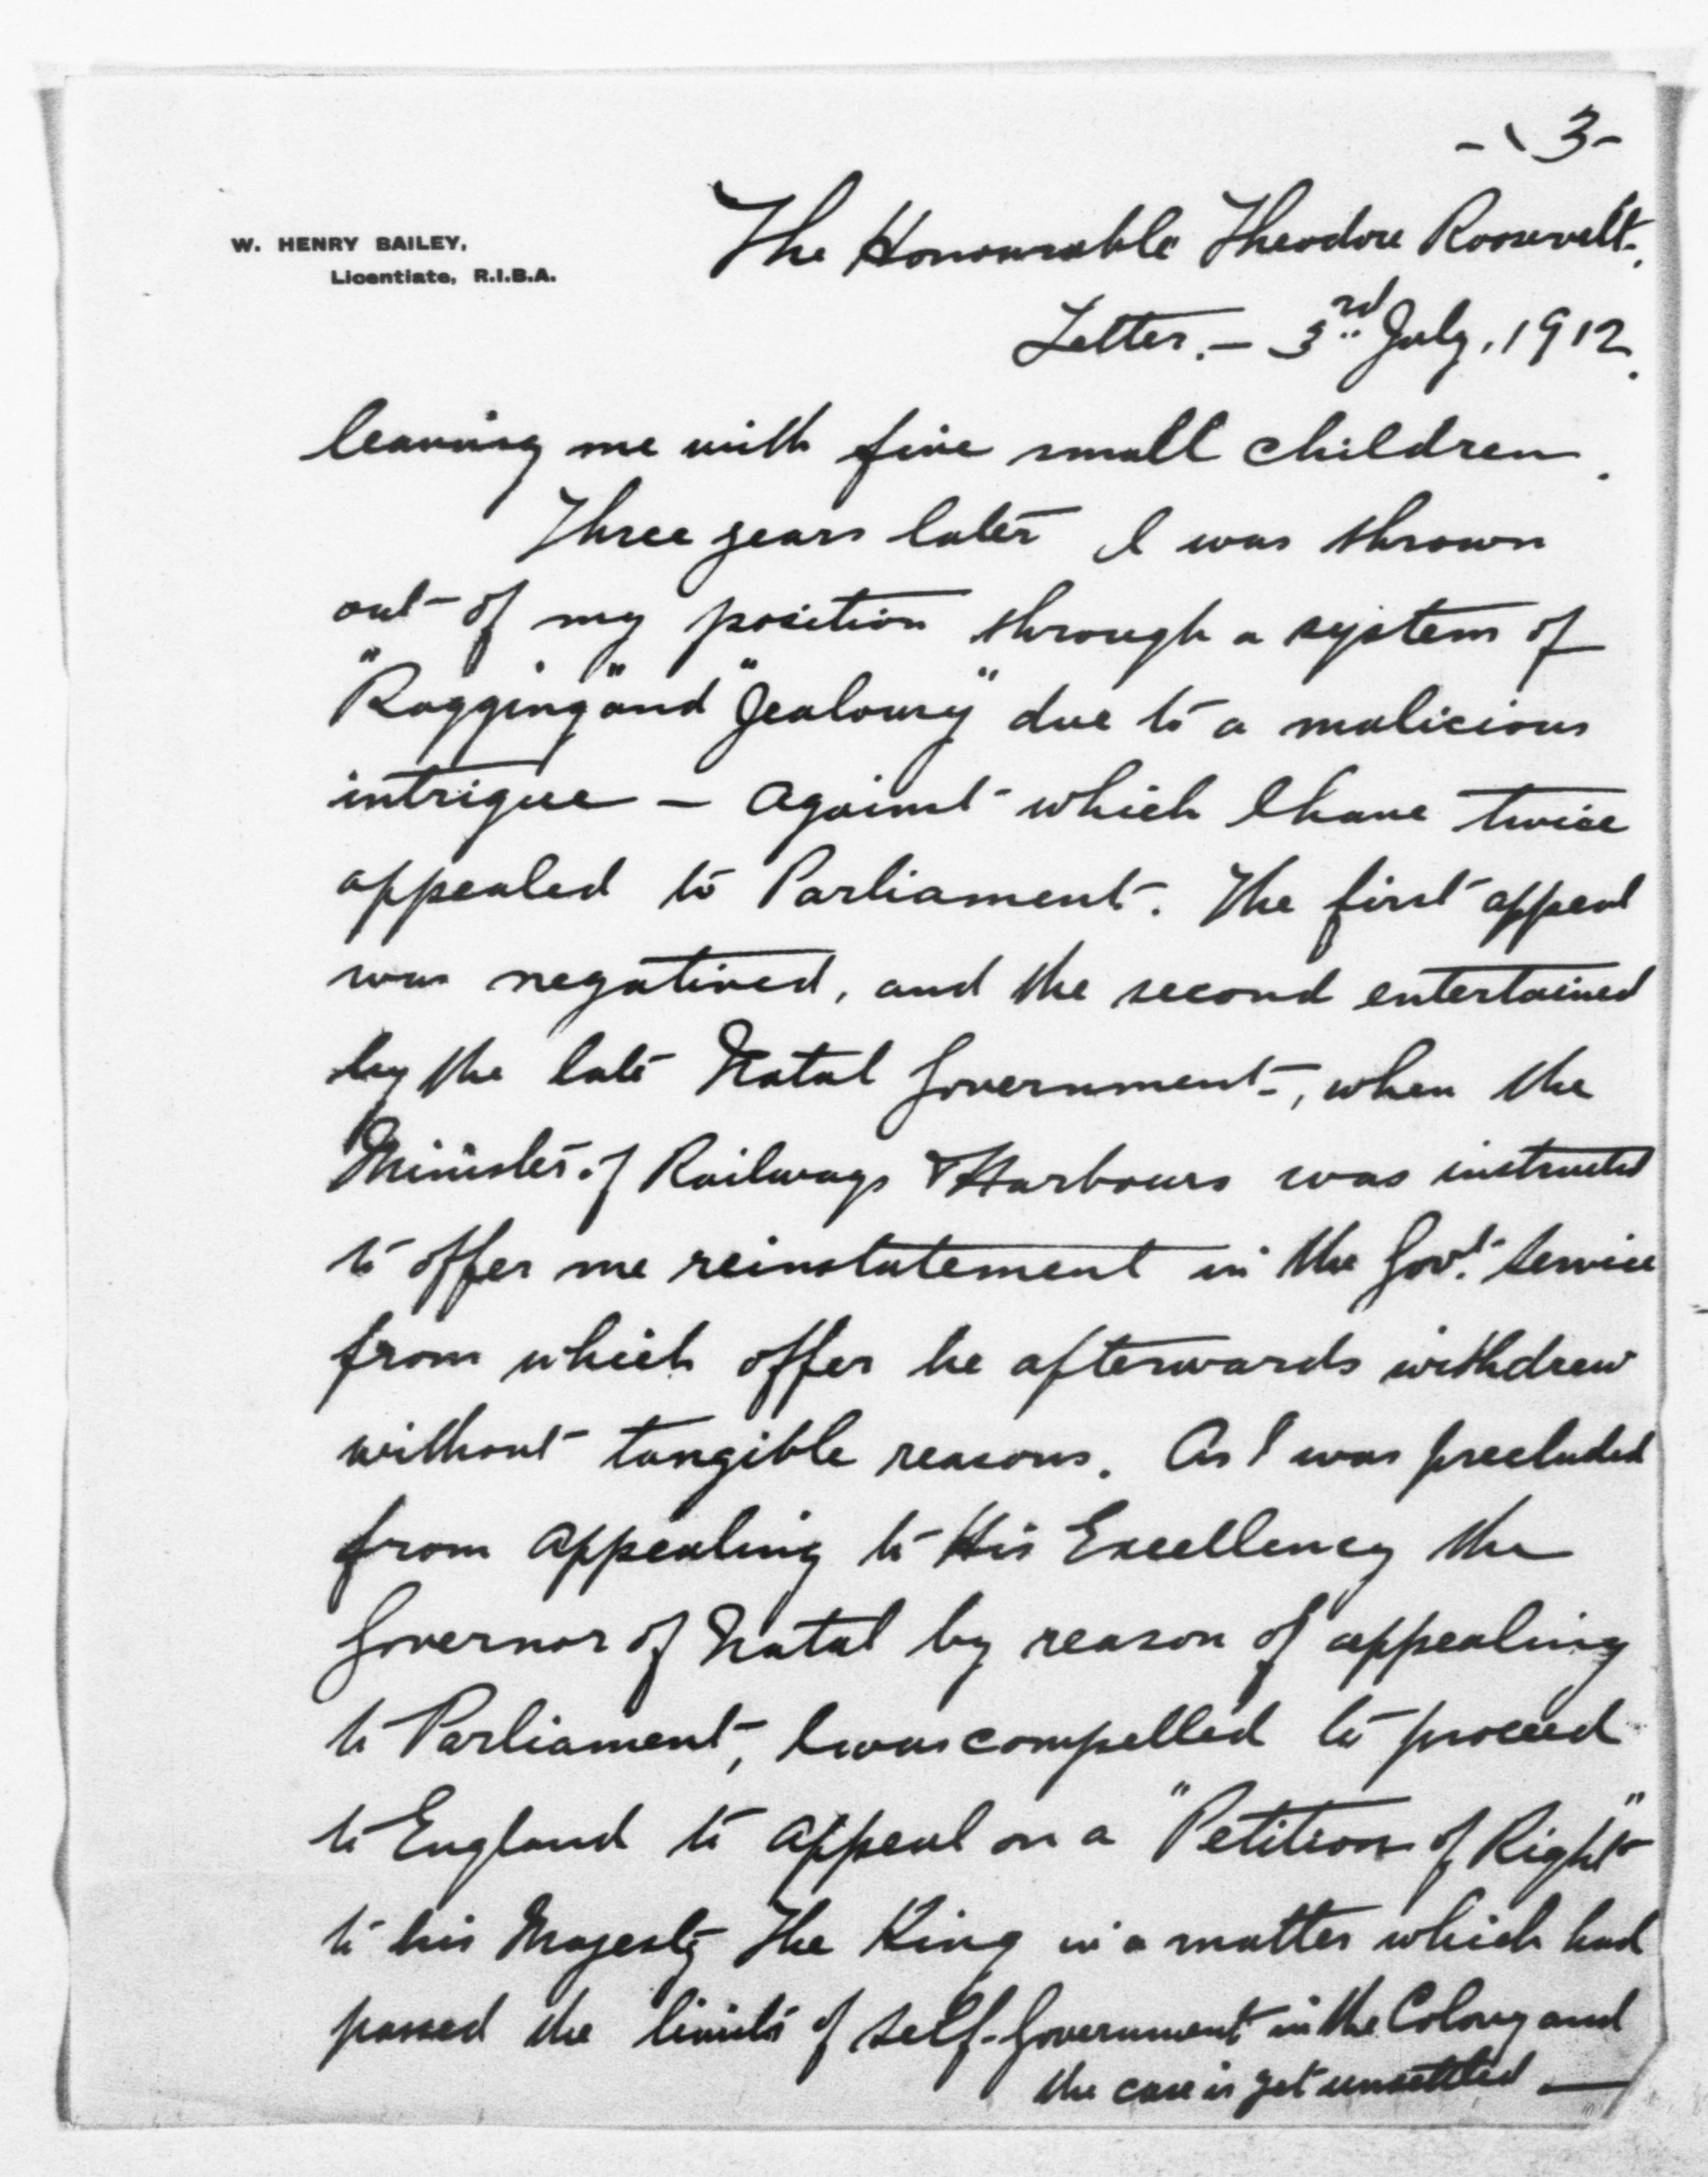 - 3 -
W. HENRY BAILEY,
Licentiate, R.I.B.A.
The Honourable Theodore Roosevelt.
Letter. — 3rd July, 1912.
leaving me with five small children.
Three years later I was thrown
out of my position through a system of
"Ragging" and "Jealousy" due to a malicious
intrigue — against which I have twice
appealed to Parliament. The first appeal
was negatived, and the second entertained
by the late Natal Government, when the
Minister of Railways & Harbours was instructed
to offer me reinstatement in the Govt. Service
from which offer he afterwards withdrew
without tangible reasons. As I was precluded
from appealing to His Excellency the
Governor of Natal by reason of appealing
to Parliament, I was compelled to proceed
to England to appeal on a "Petition of Right"
to his Majesty The King in a matter which had
passed the limits of Self-Government in the Colony and
the case is yet unsettled —